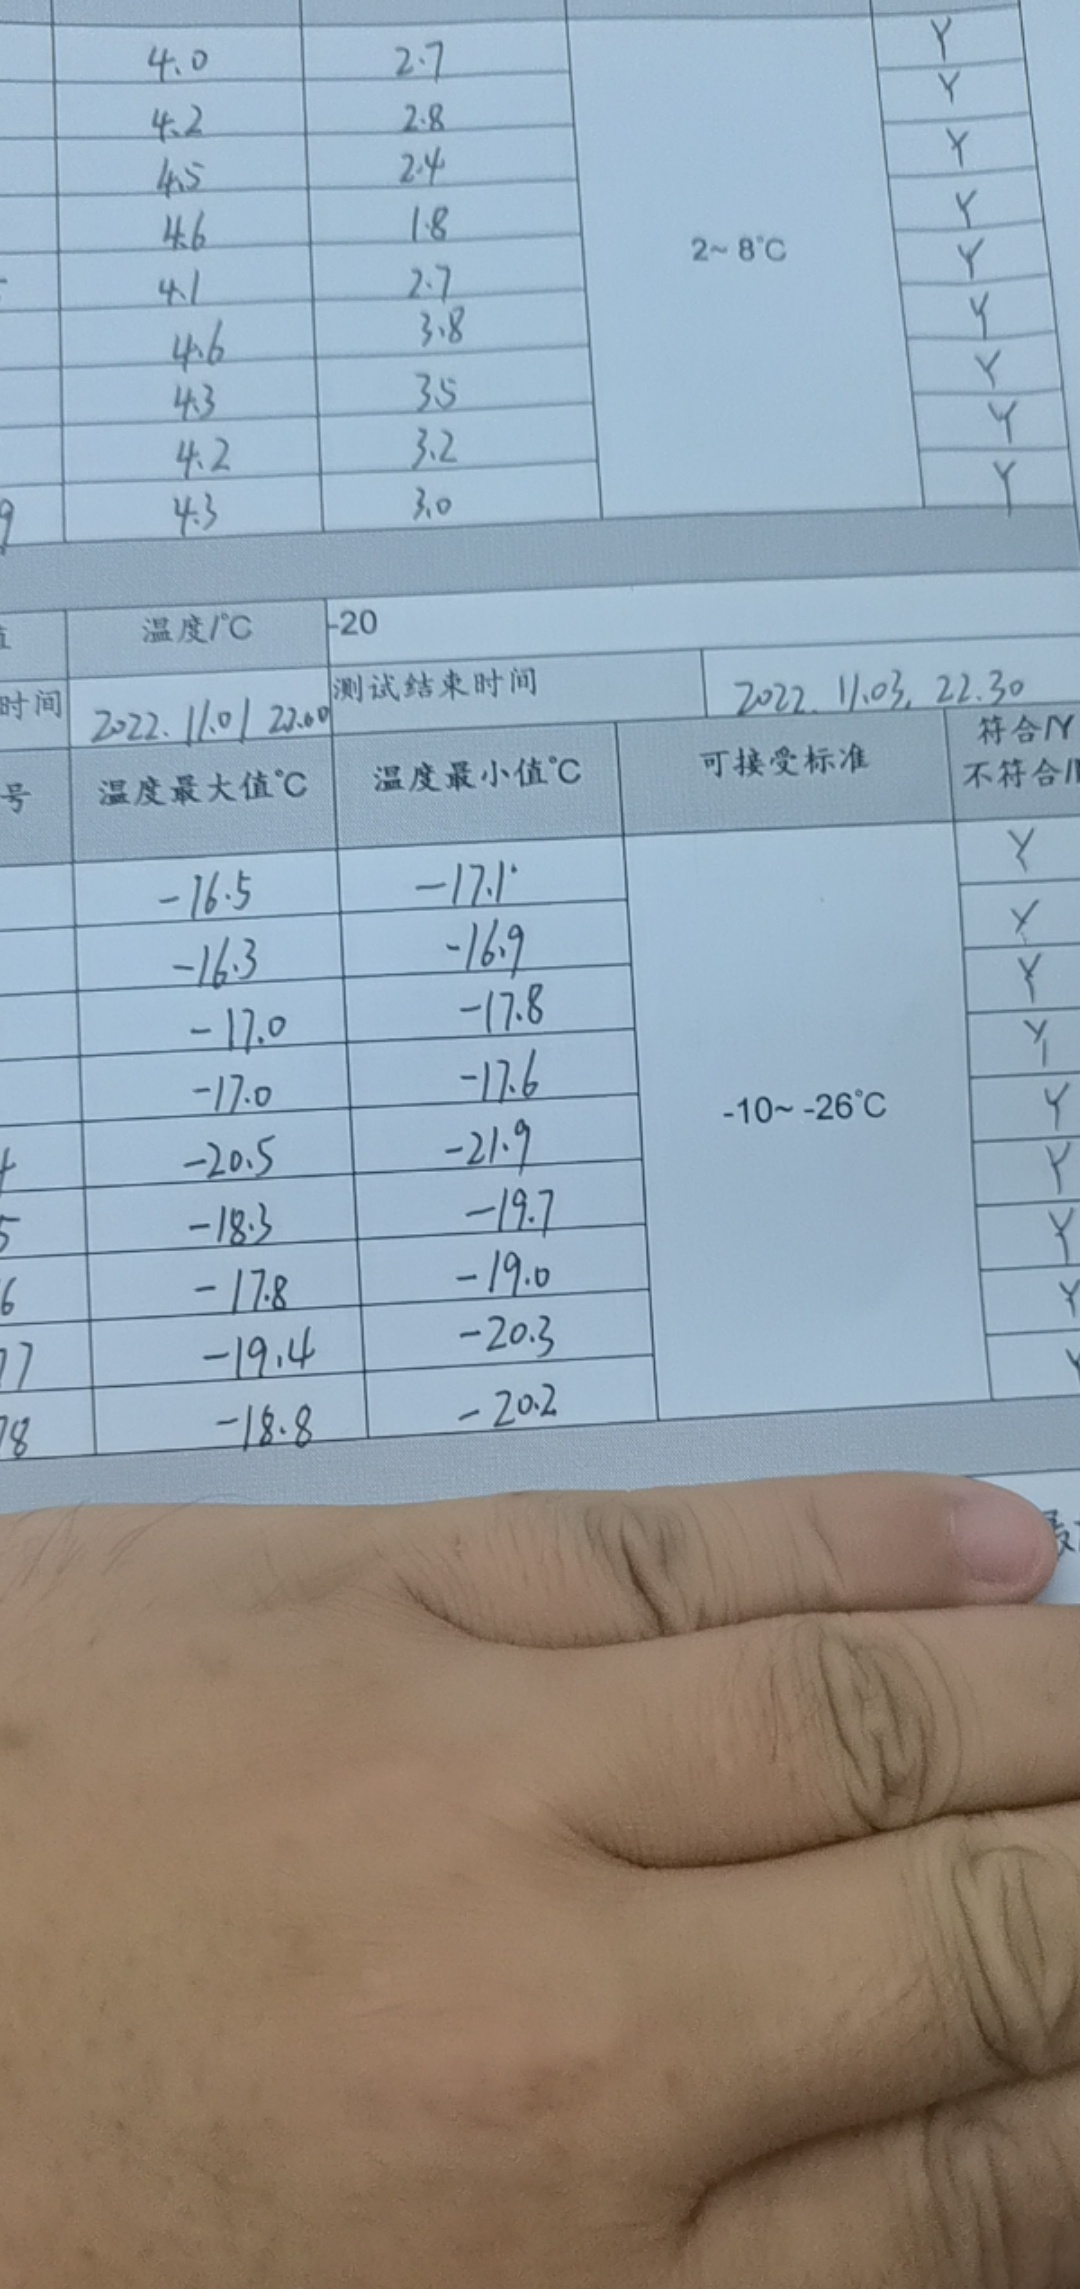 4.0 2.7 Y
4.2 2.8 Y
4.5 2.4 Y
4.6 1.8 2~ 8°C Y
4.1 2.7 Y
4.6 3.8 Y
4.3 3.5 Y
4.2 3.2 Y
9 4.3 3.0 Y
值 温度/°C -20
时间 2022. 11.01 测试结束时间 2022. 11.03. 22.30
号 温度最大值°C 温度最小值°C 可接受标准 符合/Y
不符合/
-16.5 -17.1 Y
-16.3 -16.9 Y
-17.0 -17.8 Y
-17.0 -17.6 -10~ -26°C Y
4 -20.5 -21.9 Y
5 -18.3 -19.7 Y
6 -17.8 -19.0 Y
77 -19.4 -20.3 Y
78 -18.8 -20.2 Y